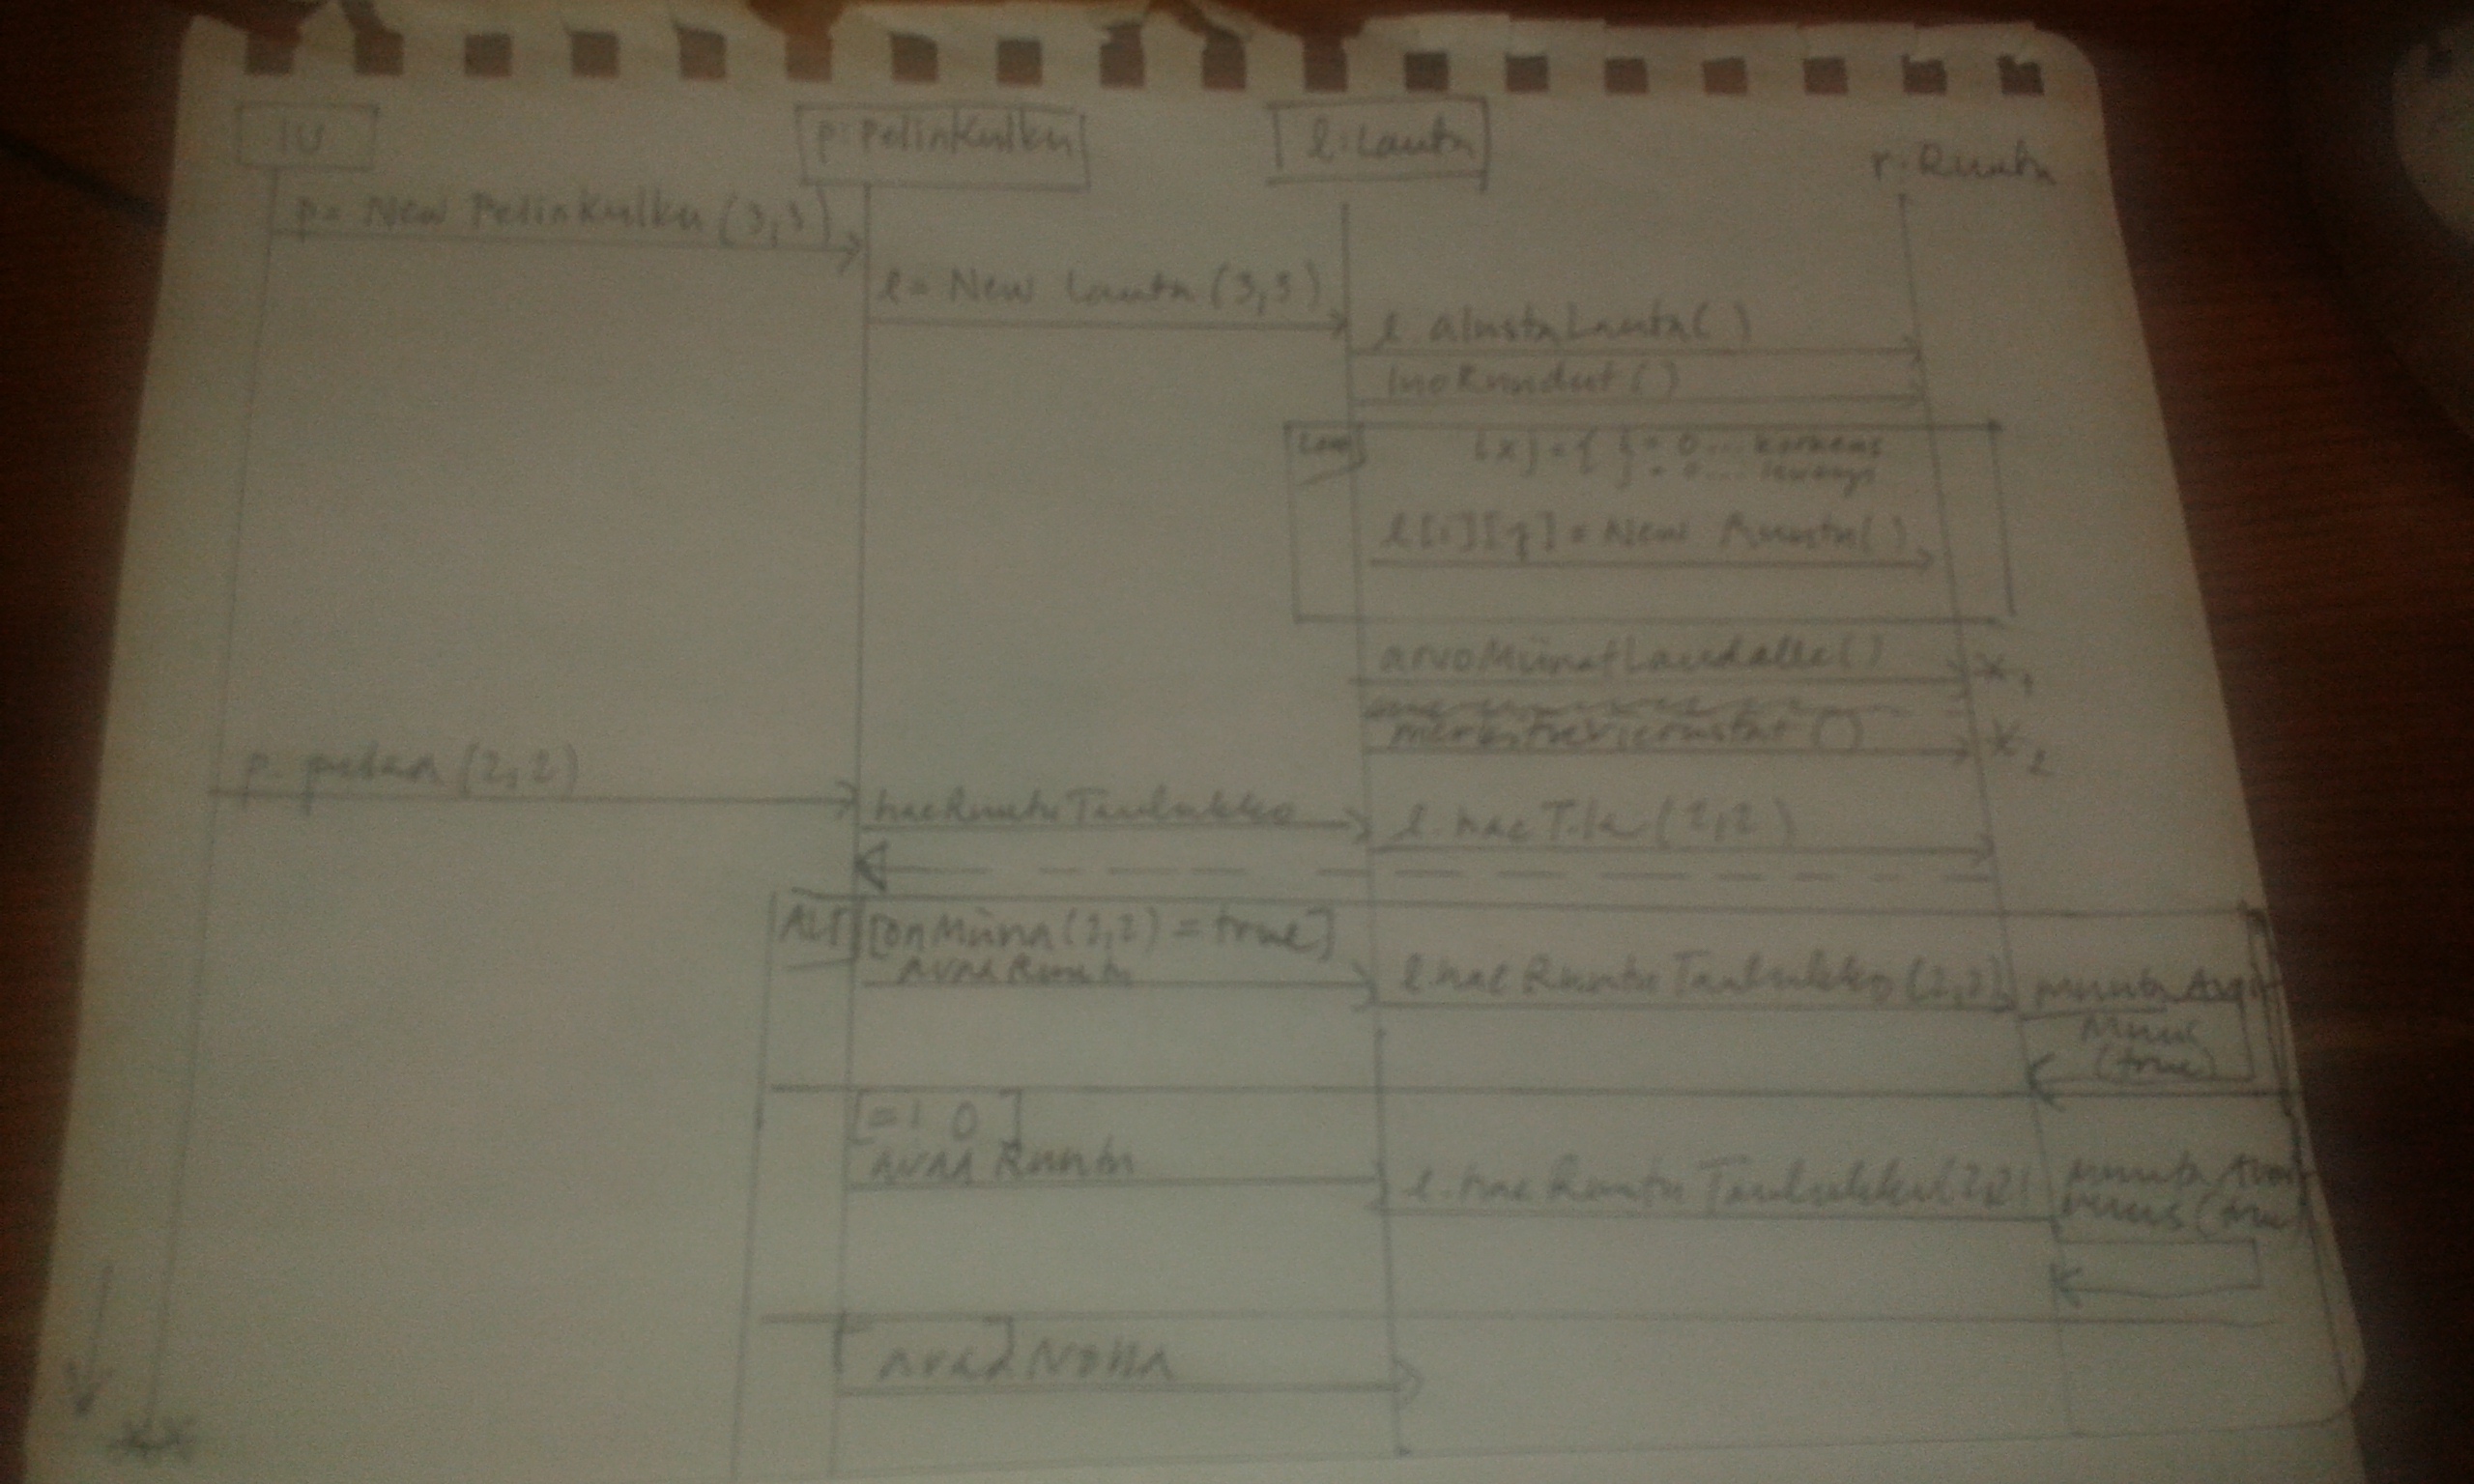 IU
p:PelinKulku
l:Lauta
r:Ruutu
p= New PelinKulku (3,3)
l= New Lauta (3,3)
l alustaLauta()
luoRuudut()
Loop
0... korkeus
0... leveys
l[i][j] = New Ruutu()
arvoMiinatLaudalle() x1
x2
p. pelaa (2,2)
haeRuutuTaulukko
l.hae T.k (2,2)
ALT [onMiina(2,2) = true]
avaaRuutu
l.haeRuutuTaulukko (2,2)
(true)
[=! 0]
avaa Ruutu
l.haeRuutuTaulukko(2,2)
(true)
avaa Nolla